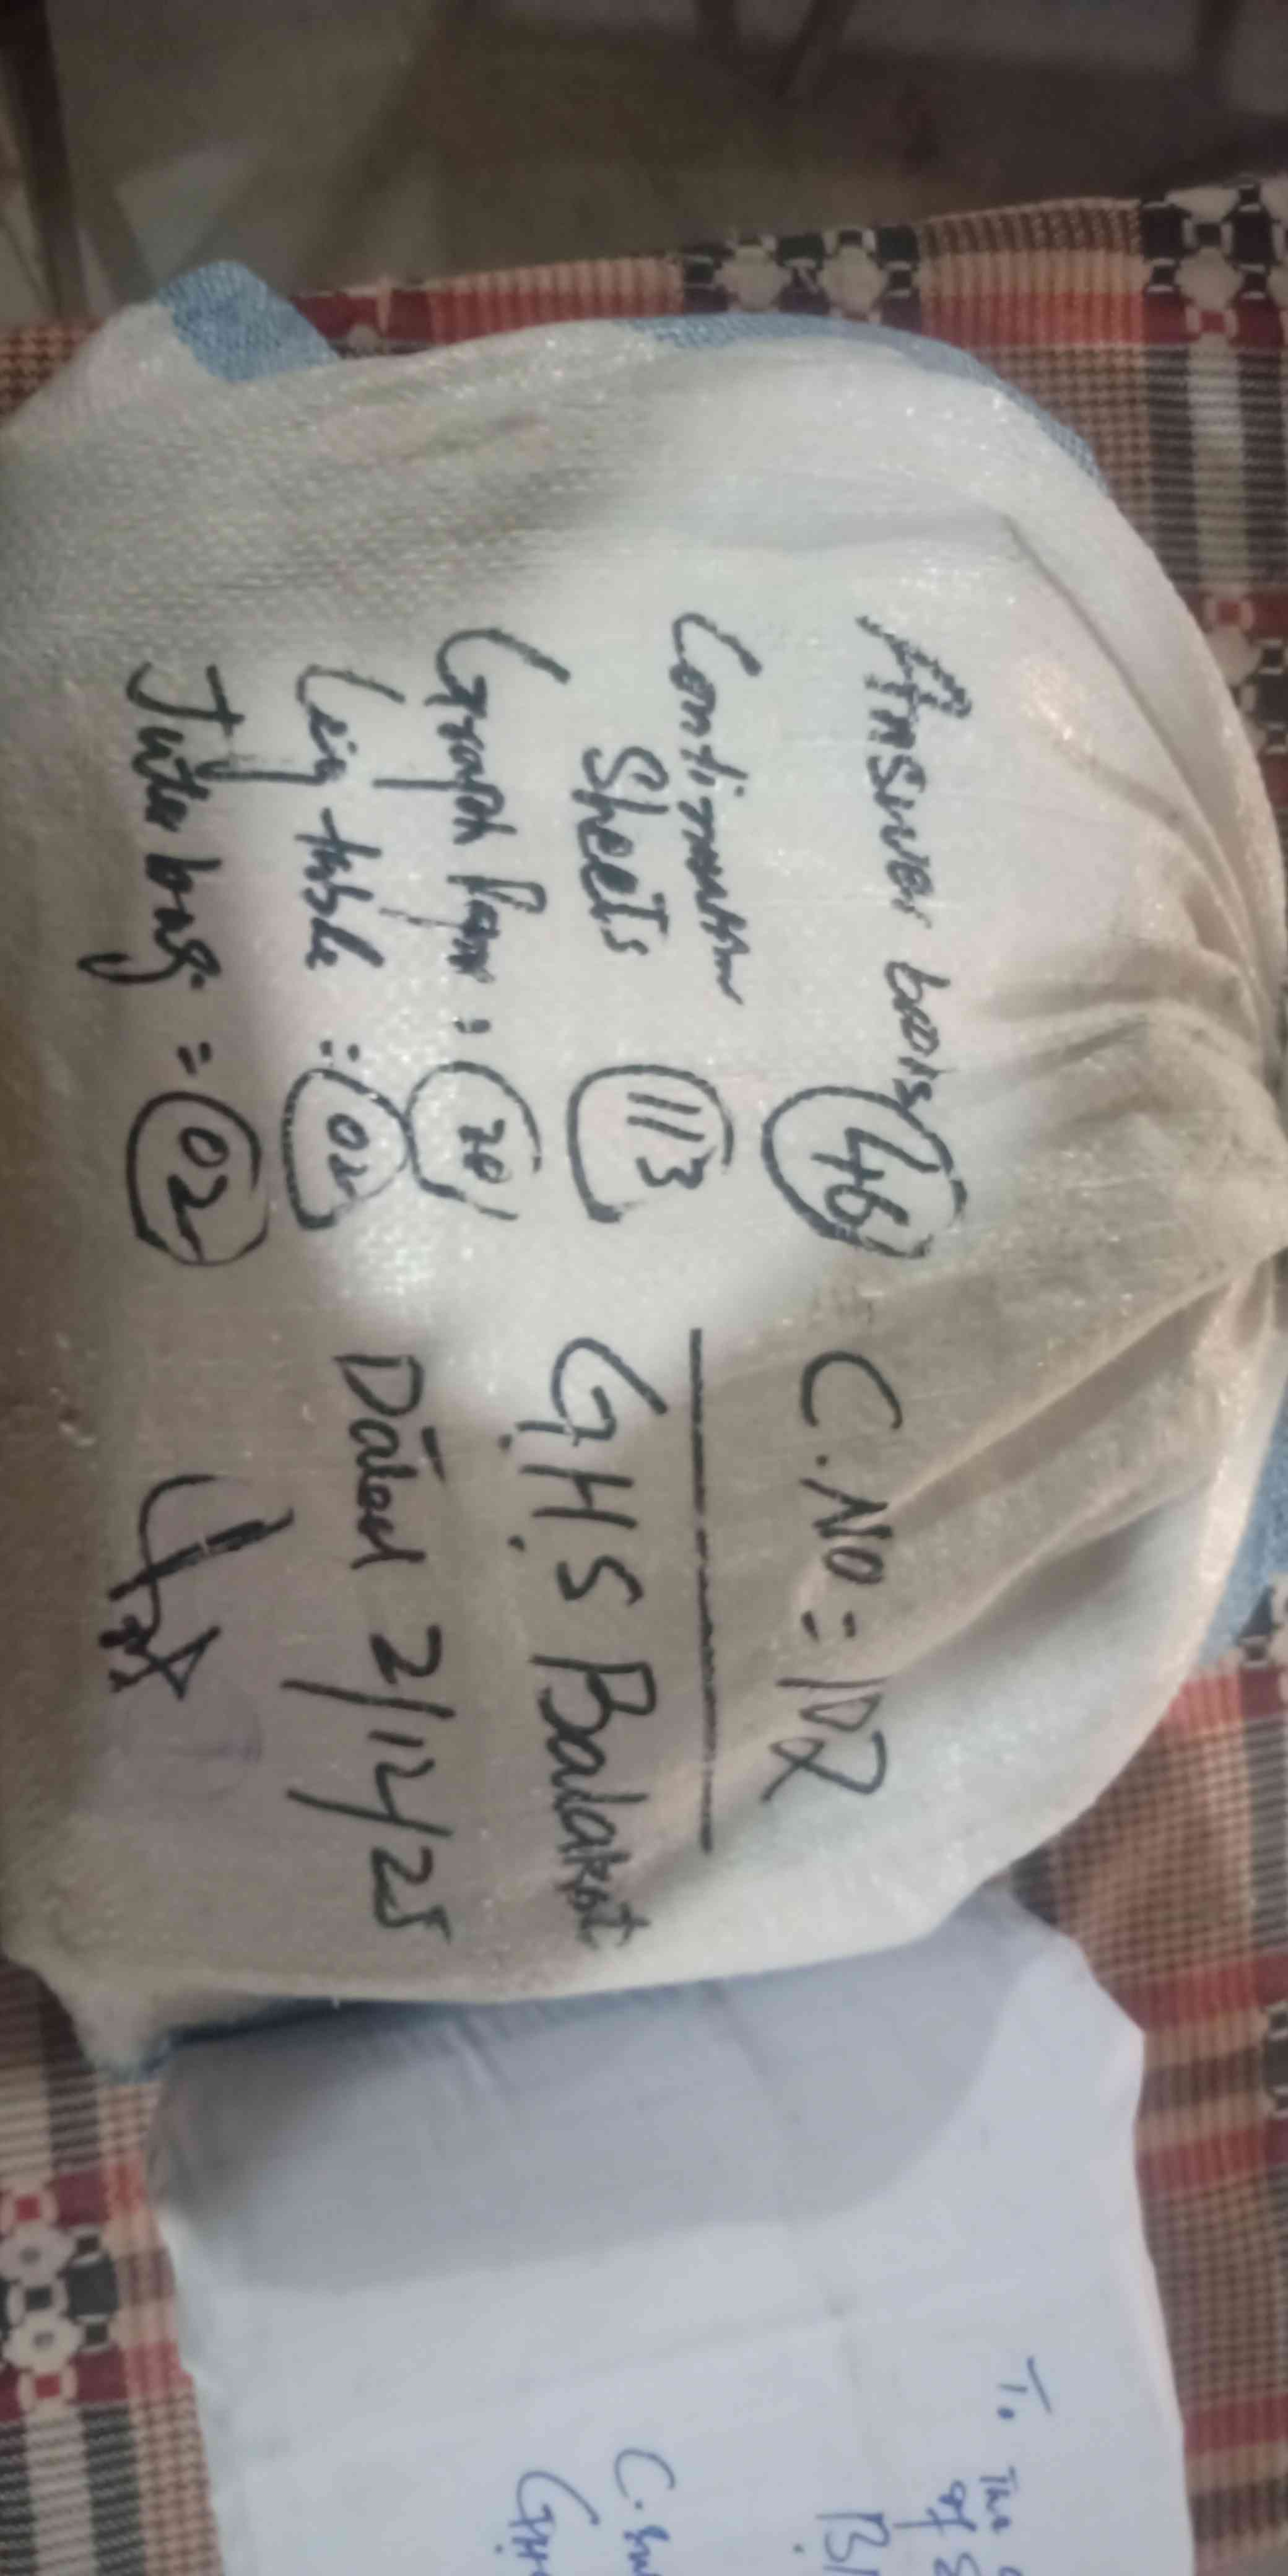 Answer books 46
Continuation
Sheets 113
Graph Paper : 20
Log table : 02
Jute bag = 02
C.No = 102
G.H.S Balakot
Dated 2/12/25
To The
of
C.